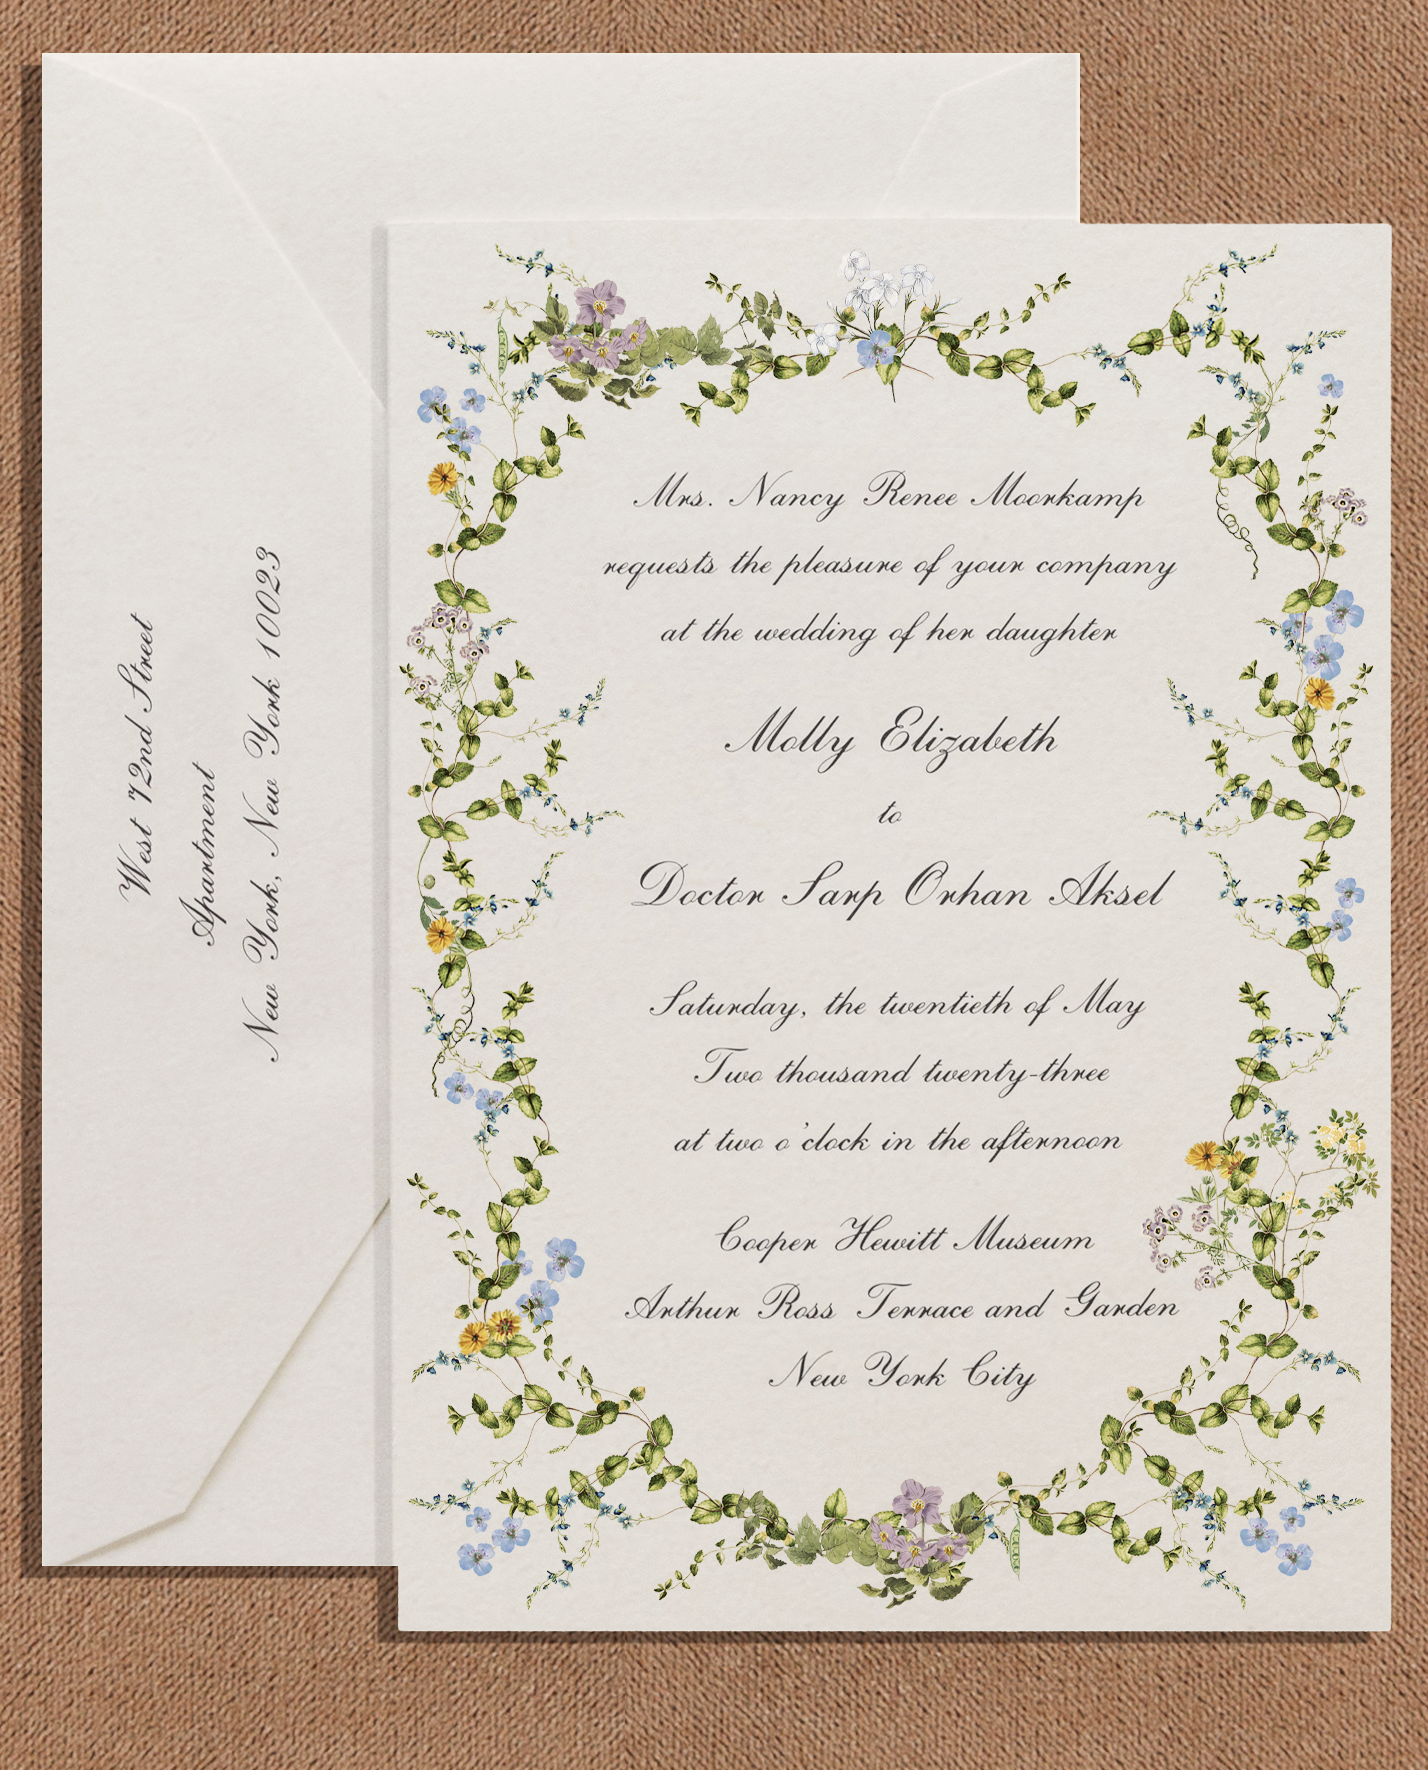 West 72nd Street
Apartment
New York, New York 10023
Mrs. Nancy Renee Moorkamp
requests the pleasure of your company
at the wedding of her daughter
Molly Elizabeth
to
Doctor Sarp Orhan Aksel
Saturday, the twentieth of May
Two thousand twenty-three
at two o'clock in the afternoon
Cooper Hewitt Museum
Arthur Ross Terrace and Garden
New York City